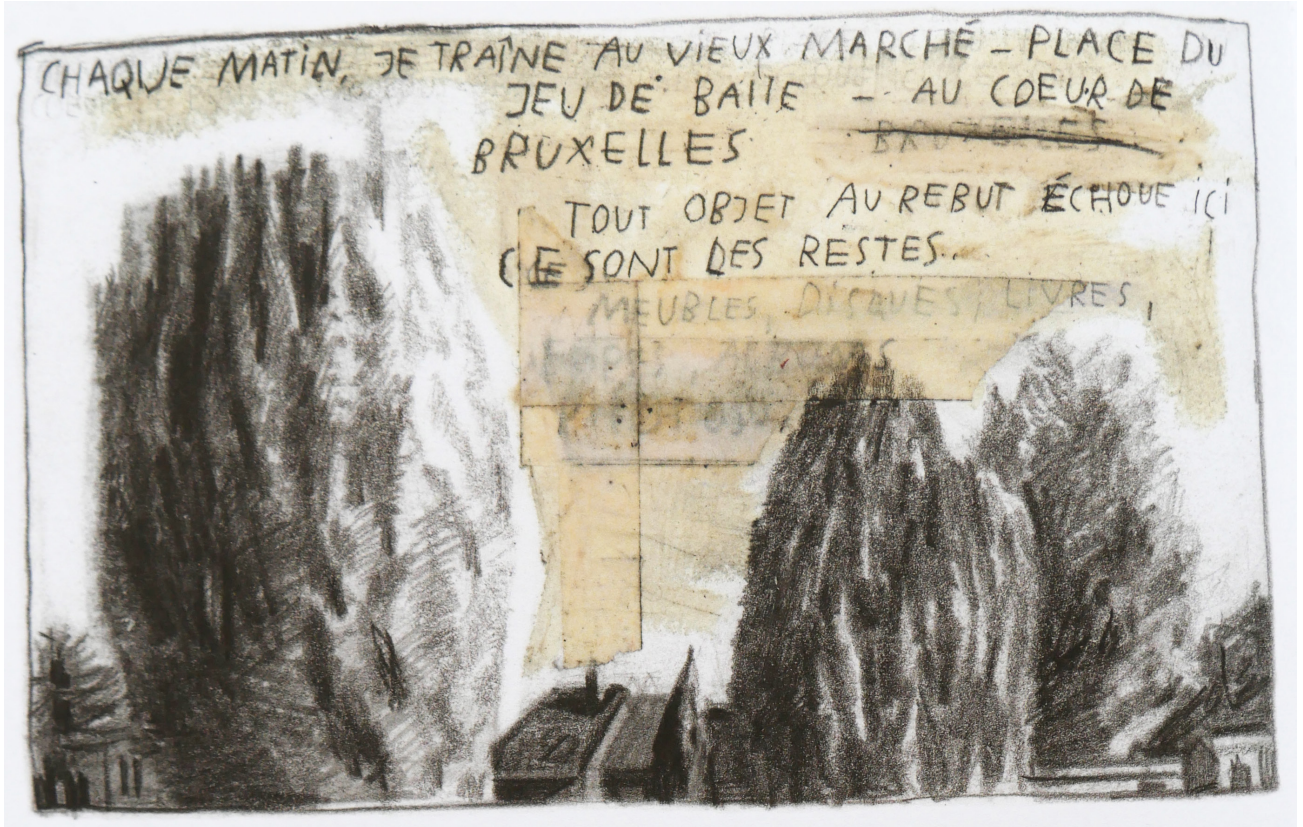 CHAQUE MATIN, JE TRAÎNE AU VIEUX MARCHÉ - PLACE DU
JEU DE BALLE - AU COEUR DE
BRUXELLES
TOUT OBJET AU REBUT ÉCHOUE ICI
CE SONT DES RESTES..
MEUBLES, DISQUES, LIVRES,